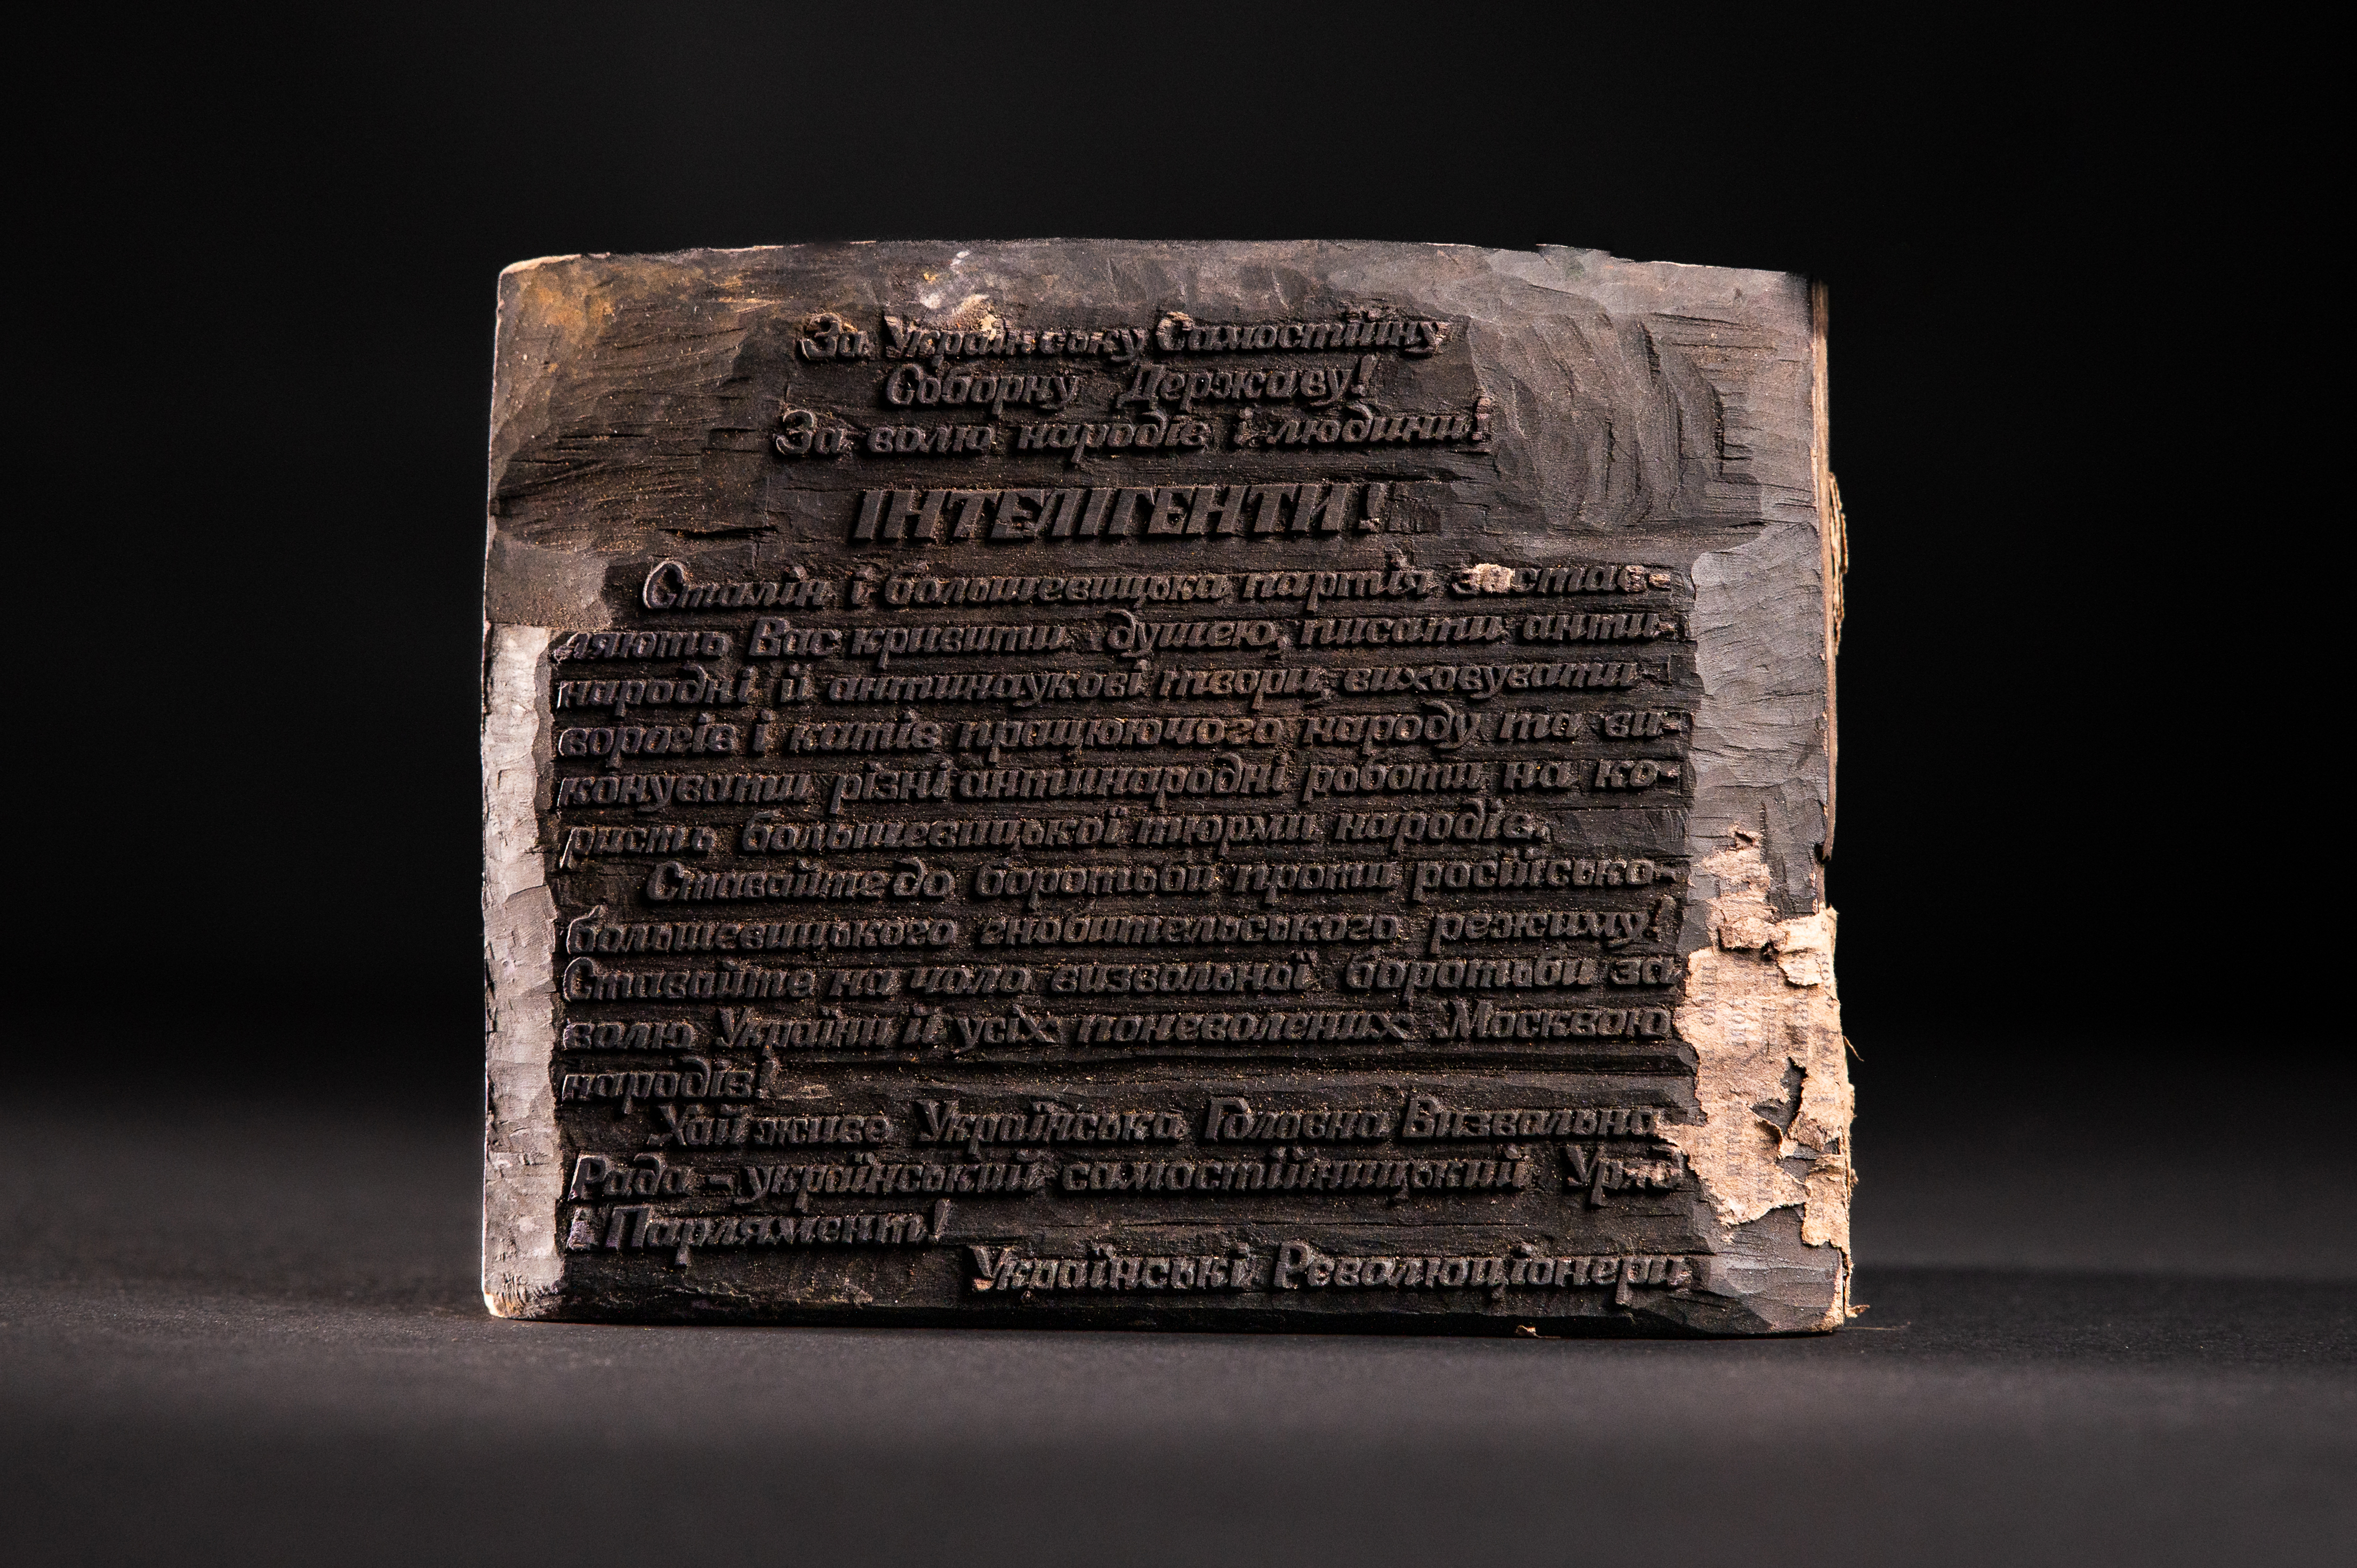 За Українську Самостійну
Соборну Державу!
За волю народів і людини!
ІНТЕЛІГЕНТИ!
Сталін і большевицька партія застав-
ляють Вас кривити душею, писати анти-
народні й антинаукові твори, виховувати
ворогів і катів працюючого народу та ви-
конувати різні антинародні роботи на ко-
ристь большевицької тюрми народів.
Ставайте до боротьби проти російсько-
большевицького гнобительського режиму!
Ставайте на чоло визвольної боротьби за
волю України й усіх поневолених Москвою
народів!
Хай живе Українська Головна Визвольна
Рада - український самостійницький Уряд
і Парлямент!
Українські Революціонери